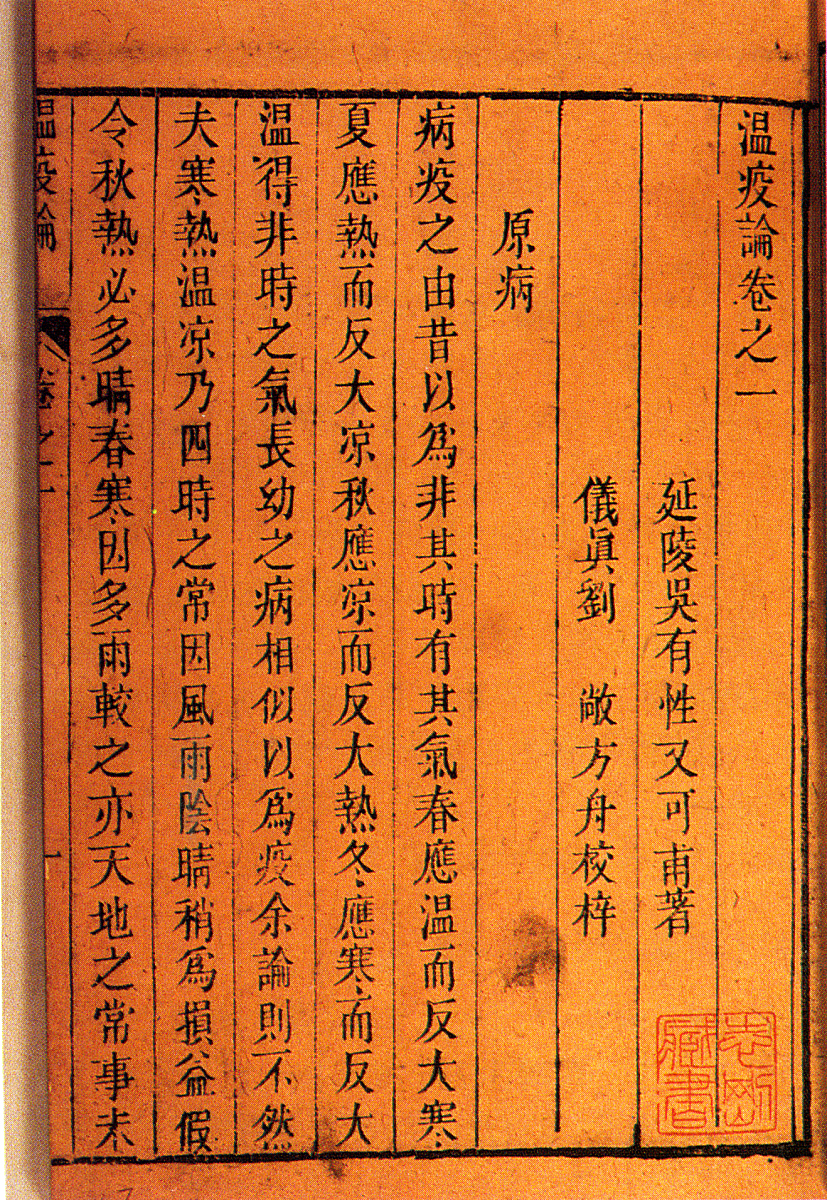 温疫論卷之一
延陵吳有性又可甫著
儀眞劉　敞方舟校梓
原病
病疫之由昔以爲非其時有其氣春應温而反大寒
夏應熱而反大凉秋應凉而反大熱冬應寒而反大
温得非時之氣長幼之病相似以爲疫余論則不然
夫寒熱温凉乃四時之常因風雨陰晴稍爲損益假
令秋熱必多晴春寒因多雨較之亦天地之常事未
温疫論
卷之一
一
志剛藏書